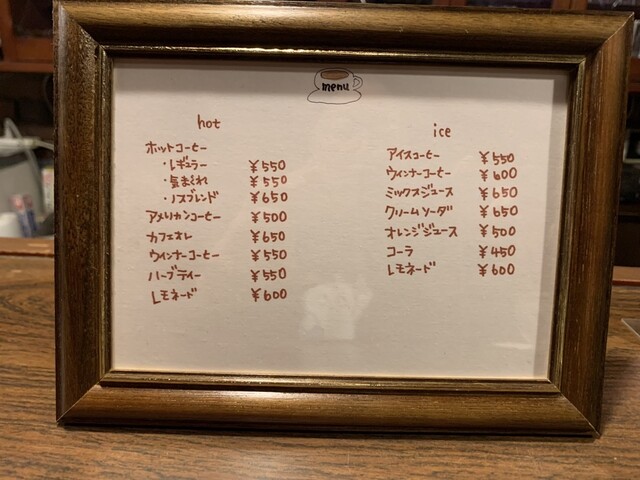 menu
hot
ホットコーヒー
・レギュラー ¥550
・気まぐれ ¥550
・ノスブレンド ¥650
アメリカンコーヒー ¥500
カフェオレ ¥650
ウィンナーコーヒー ¥550
ハーブティー ¥550
レモネード ¥600
ice
アイスコーヒー ¥550
ウィンナーコーヒー ¥600
ミックスジュース ¥650
クリームソーダ ¥650
オレンジジュース ¥500
コーラ ¥450
レモネード ¥600